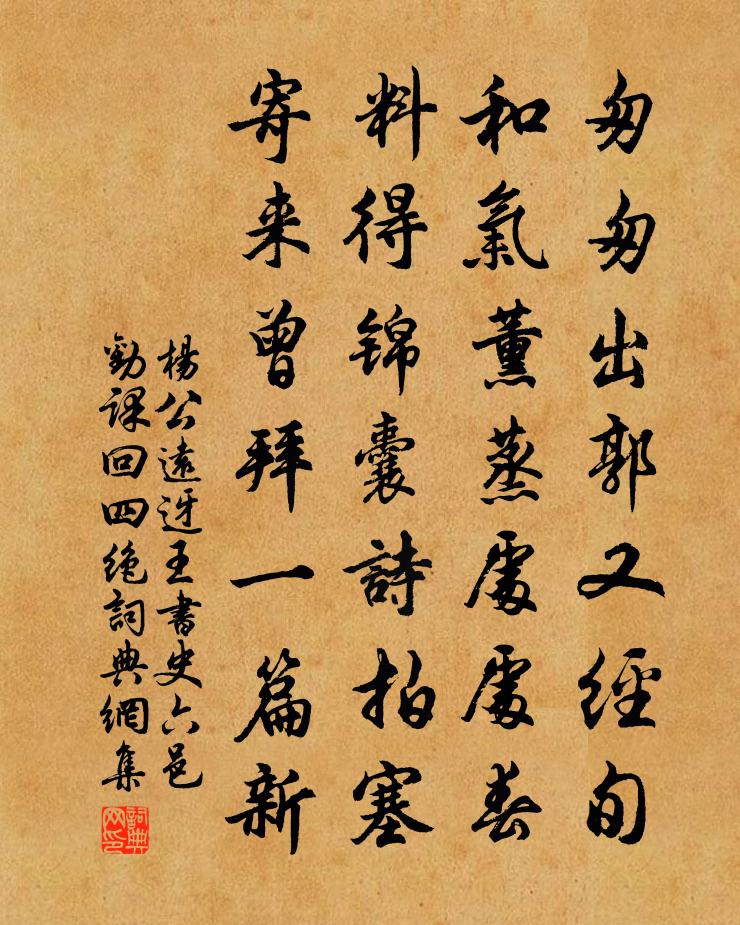 匆匆出郭又經旬
和氣薰蒸處處春
料得锦囊詩拍塞
寄来曾拜一篇新
楊公遠迓王書史六邑
勸課回四绝詞典網集
詞典网印